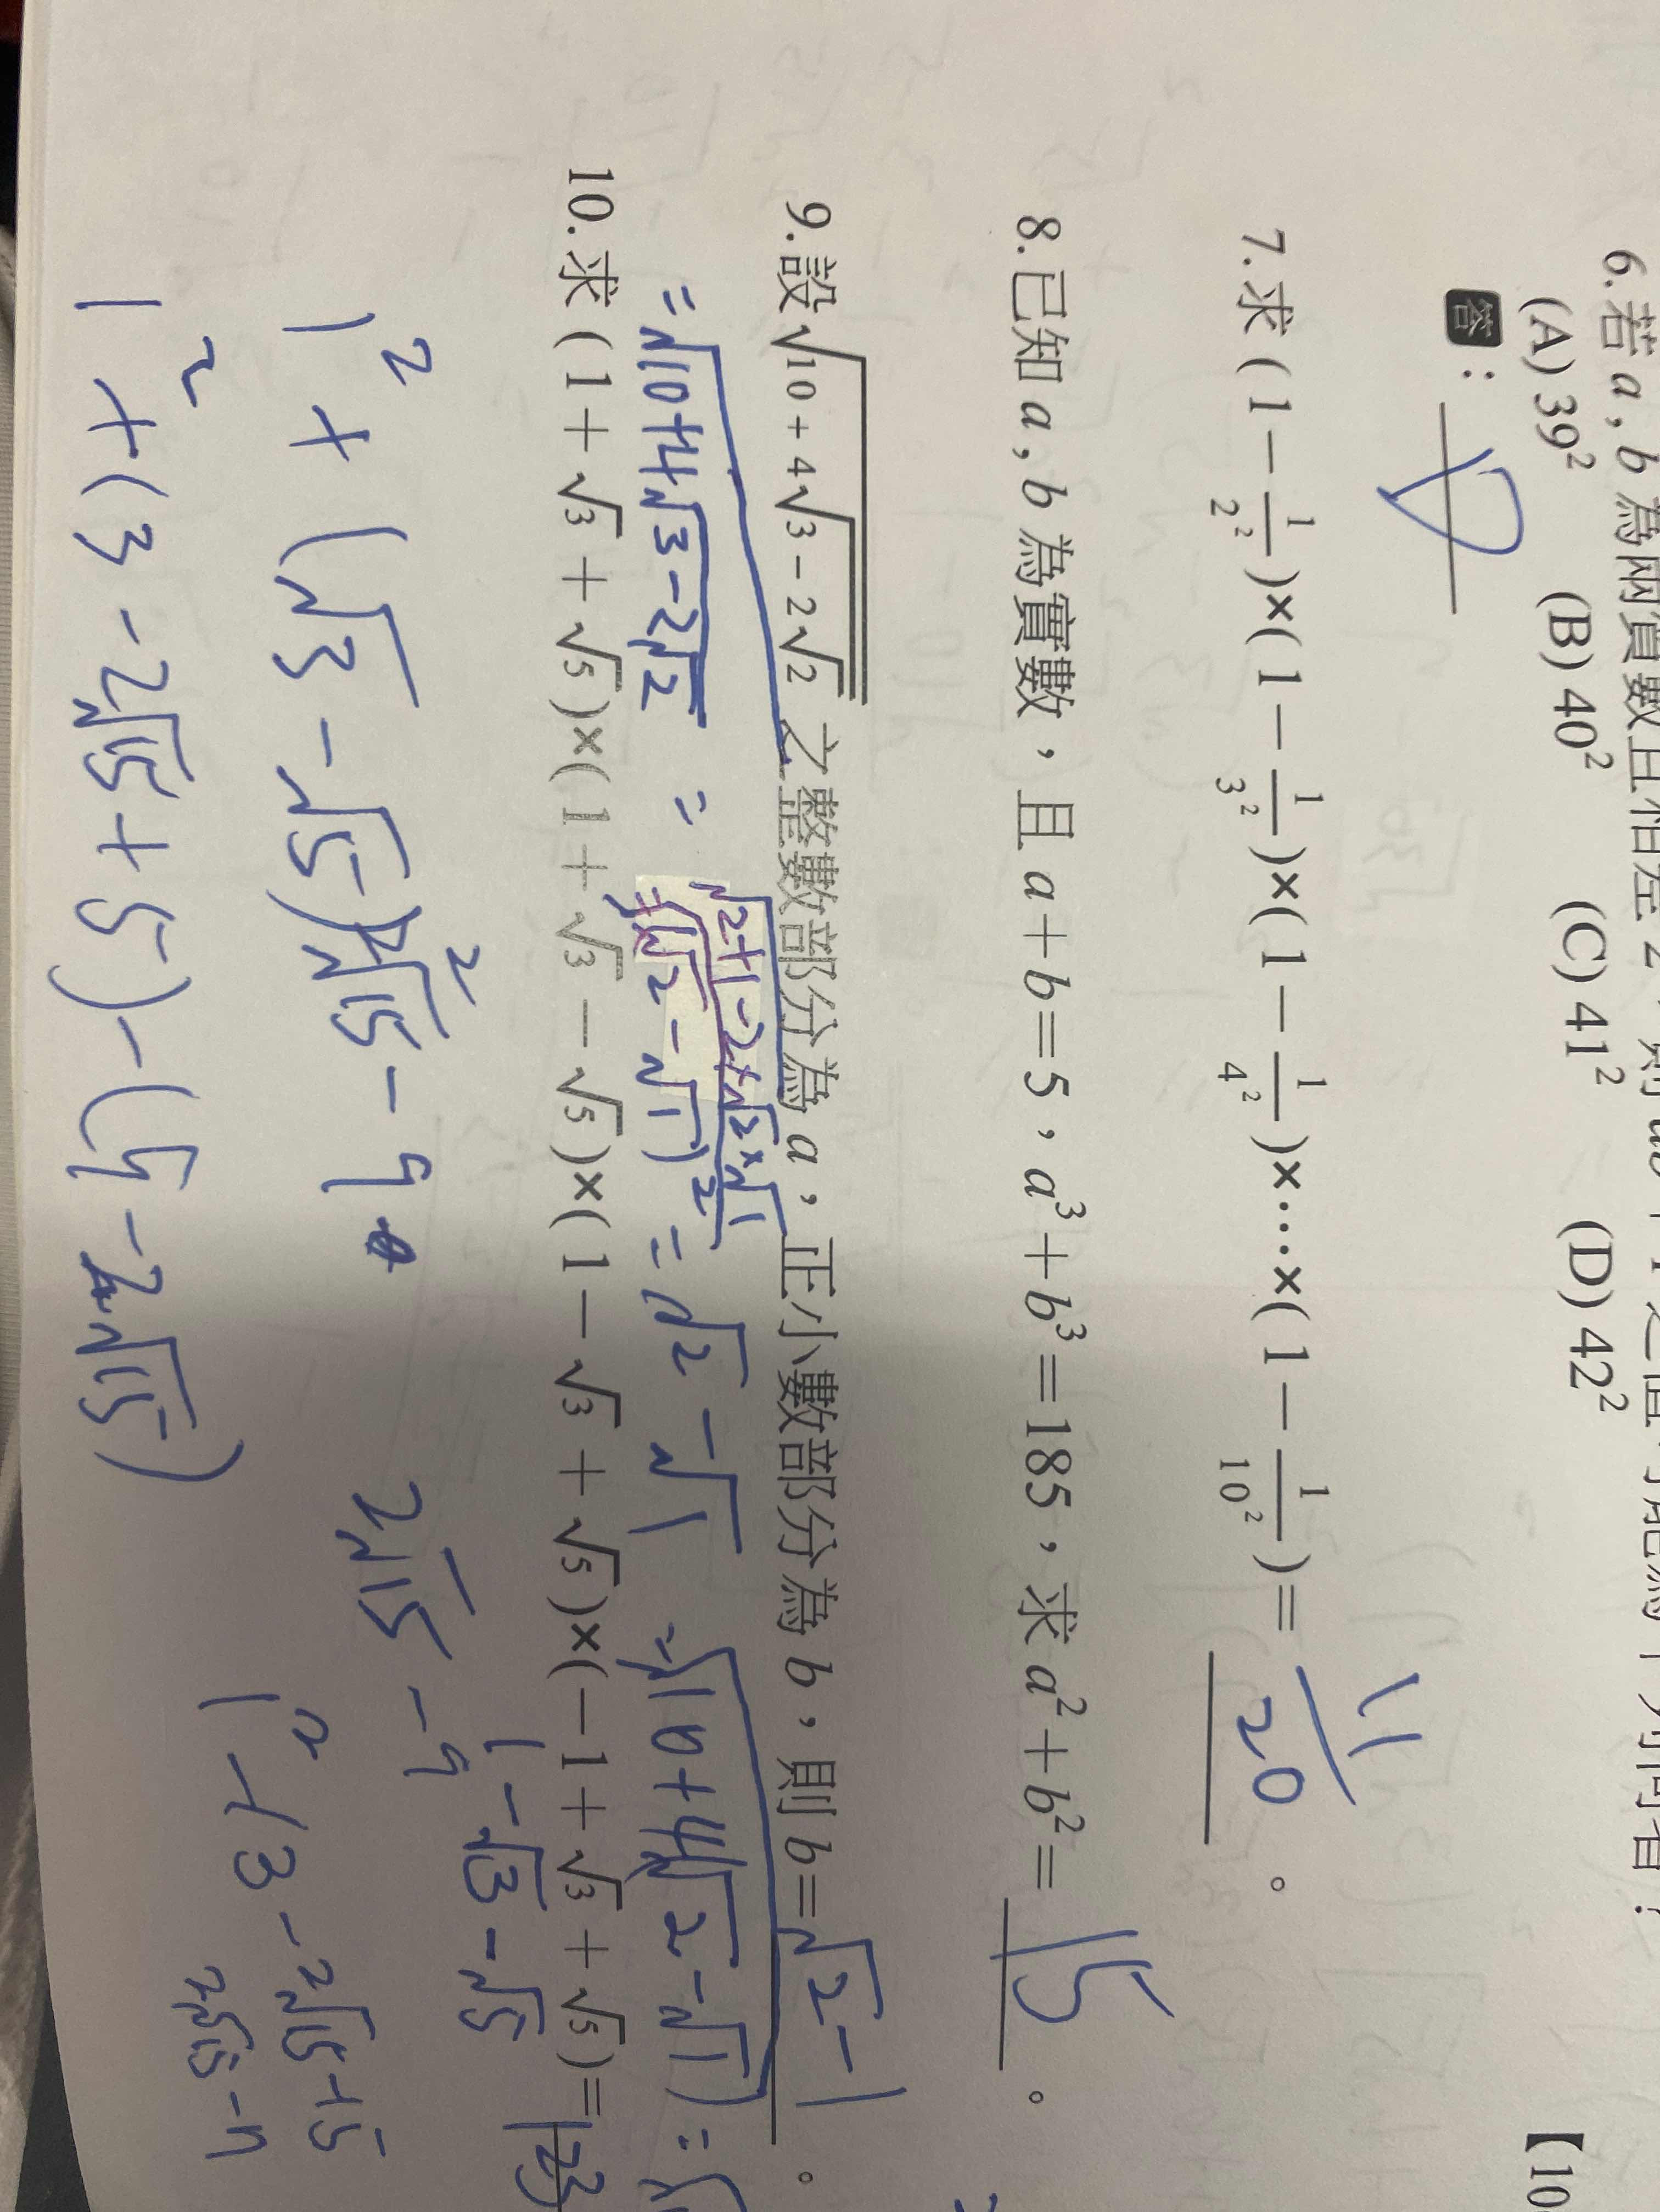 6.若 a , b 為兩
(A) 39² (B) 40² (C) 41² (D) 42²
答：D
【10
7.求 ( 1 − 1/2² )×( 1 − 1/3² )×( 1 − 1/4² )×⋯×( 1 − 1/10² )= 11/20 。
8.已知 a , b 為實數，且 a + b = 5，a³ + b³ = 185，求 a² + b² = 15 。
9.設 √(10 + 4√(3 − 2√2)) 之整數部分為 a，正小數部分為 b，則 b = √2 − 1 。
= √(10+4√(3−2√2)) =
√(2+1−2×√2×√1)
= √(√2 − √1)² = √2 − √1 = √(10+4(√2−√1)) =
10.求 ( 1 + √3 + √5 )×( 1 + √3 − √5 )×( 1 − √3 + √5 )×( − 1 + √3 + √5 )=
1 − √3 − √5
1² + (√3 − √5)² 2√15 − 9
2√15 − 9
1² + (3 − 2√15 + 5) − (9 − 2√15)
1² + 3 − 2√15 + 5